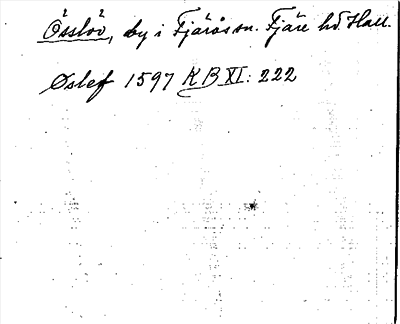 Össlöv, by i Fjärås sn. Fjäre hd. Hall.
Øslef 1597 KB XI: 222